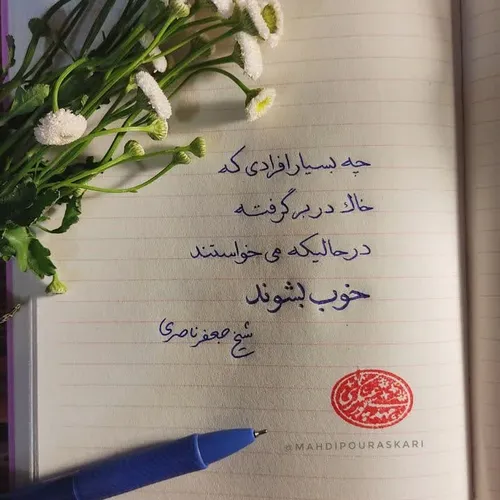 چه بسیار افرادی که
خاک در بر گرفته
در حالیکه می خواستند
خوب بشوند
شیخ جعفر ناصری
@MAHDIPOURASKARI